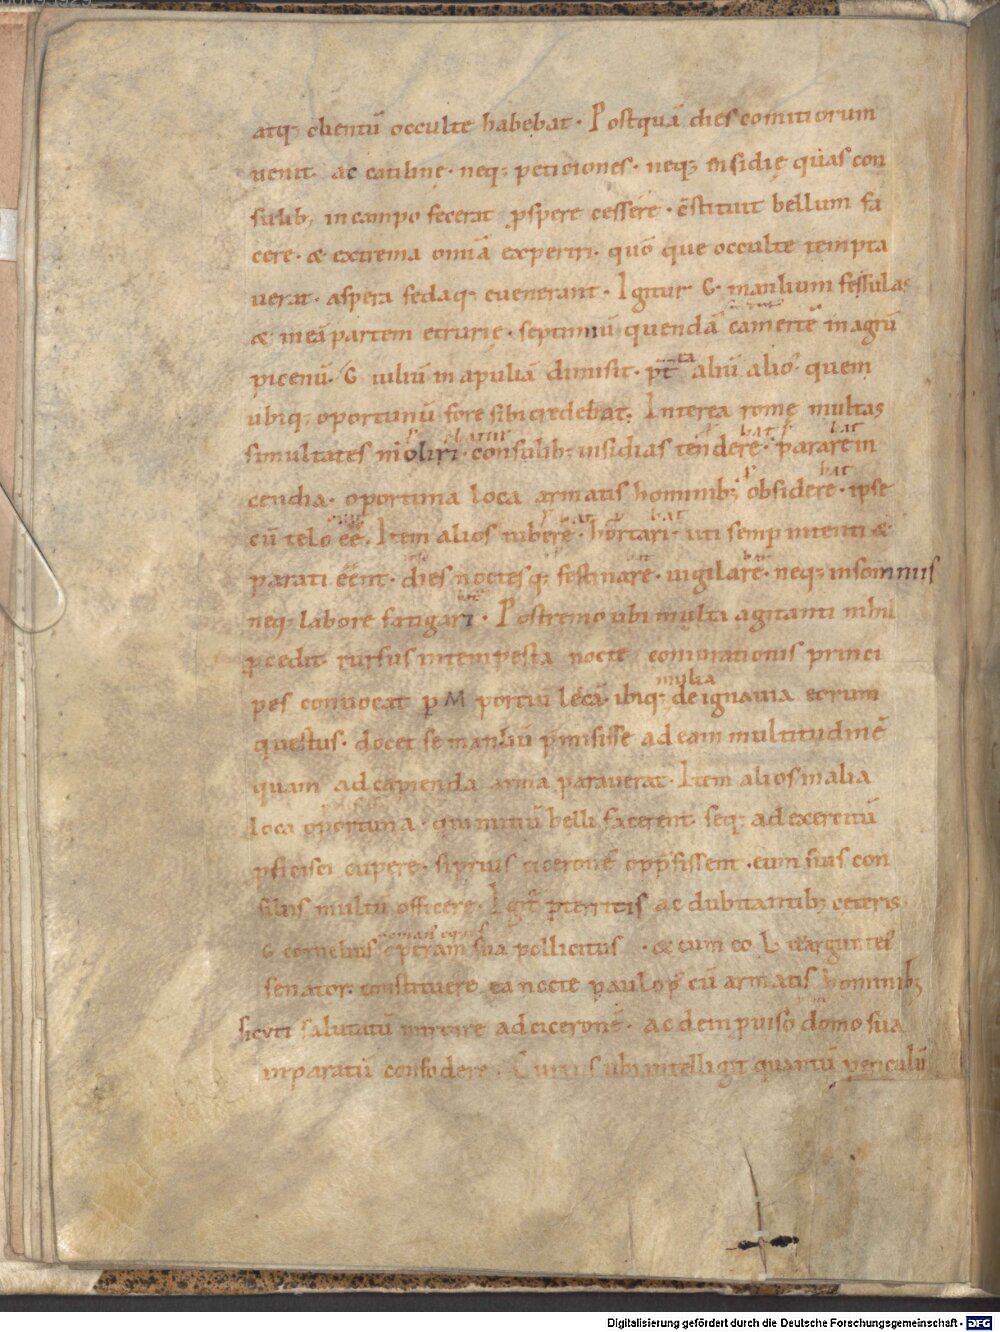 atq; clientū occulte habebat · Postquā dies comitiorum
uenit · ac catiline · neq; peticiones · neq; insidię quas con
sulib; in campo fecerat ꝓspere cessere · c̄stituit bellum fa
cere · & extrema om̄ia experiri · quō que occulte tempta
uerat · aspera fedaq; euenerant · Igitur G · manlium fessulas
& in eā partem etrurie · septimiū quendā camertē in agrū
picenū · G iuliū in apuliā dimisit · p̄t̄ta aliū alio · quem
ubiq; oportunū fore sibi credebat · Interea romę multas
simultates moliri · consulib; insidias tendere · parare in
cendia · oportuna loca armatis hominib; obsidere · ipse
cū telo ēē · Item alios iubere · hortari · uti semp intenti &
parati eēnt · dies noctesq; festinare · uigilare · neq; insomniis
neq; labore fatigari · Postremo ubi multa agitanti nihil
ꝓcedit · rursus intempesta nocte coniurationis princi
pes conuocat ꝑ M portiū lecā · ibiq;
multa
de ignauia eorum
questus · docet se manliū p̄misisse ad eam multitudinē
quam ad capienda arma parauerat · Item alios in alia
loca oportuna · qui initiū belli facerent · seq; ad exercitū
ꝓficisci cupere · si prius ciceronē opp̄sissent · eum suis con
siliis multū officere · Igit̄ ꝑterritis ac dubitantib; ceteris
G cornelius
roman' eques
operam sua pollicitus · & cum eo L uarguntei'
senator · constituere ea nocte paulo p' cū armatis hominib;
sicuti salutatū introire ad ciceronē · ac de inꝓuiso domo sua
inparatū confodere · Curius ubi intelligit quantū periculū
Digitalisierung gefördert durch die Deutsche Forschungsgemeinschaft · DFG